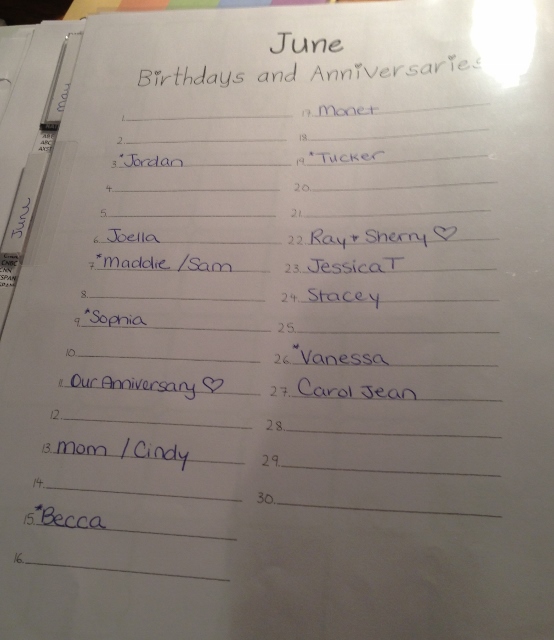 June
Birthdays and Anniversaries
1.
2.
3. *Jordan
4.
5.
6. Joella
7. *Maddie / Sam
8.
9. *Sophia
10.
11. Our Anniversary ♡
12.
13. Mom / Cindy
14.
15. *Becca
16.
17. Monet
18.
19. *Tucker
20.
21.
22. Ray + Sherry ♡
23. Jessica T
24. Stacey
25.
26. *Vanessa
27. Carol Jean
28.
29.
30.
May
June